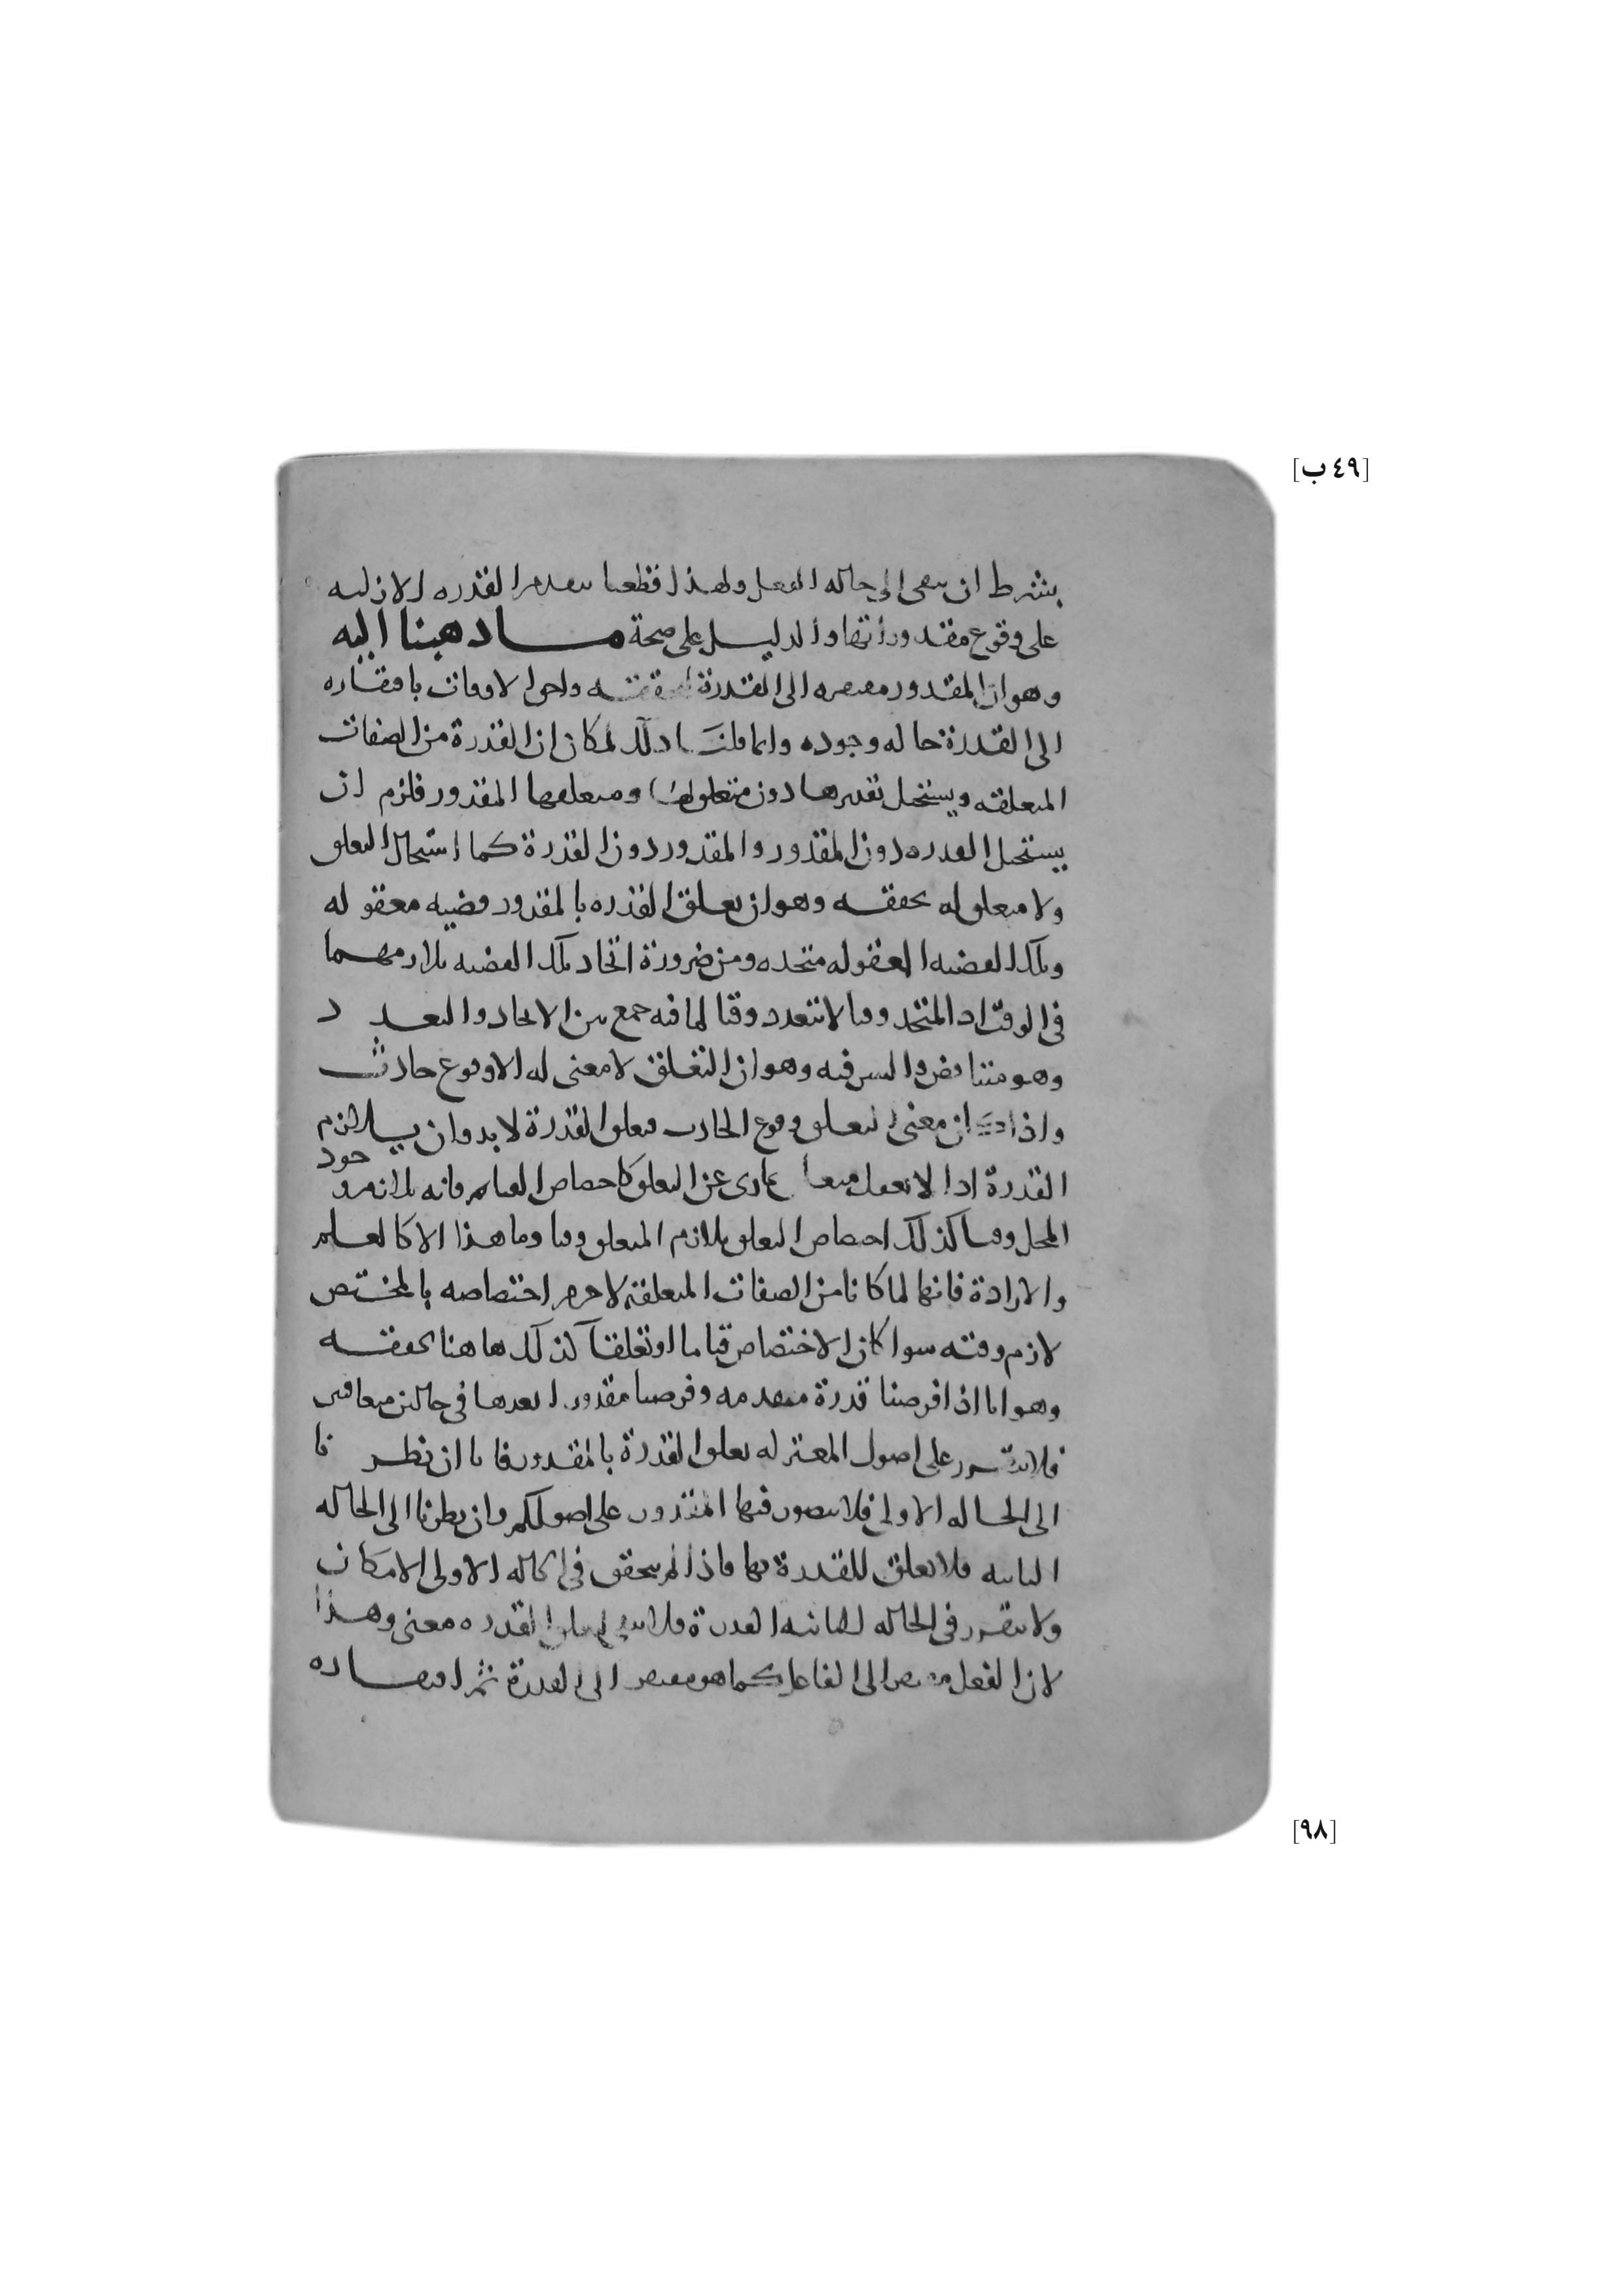 [٤٩ ب]
بشرط ان يبقى الى حاله الفعل ولهذا قطعنا بتقدم القدره الازليه
على وقوع مقدوراتها والدليل على صحة ما ذهبنا اليه
وهو ان المقدور مفتقره الى القدرة واحرا الاوقات بافتقاره
الى القدرة حاله وجوده وانما قلنا ذلك لمكان ان القدرة من الصفات
المتعلقه ويستحيل تقديرها دون متعلقها ومتعلقها المقدور فلزم ان
يستحيل القدره دون المقدور والمقدور دون القدرة كما استحال التعلق
ولا متعلق له تحققه وهو ان تعلق القدره بالمقدور قضيه معقوله
وتلك القضيه المعقوله متحده ومن ضرورة اتحاد تلك القضيه تلازمهما
في الوقت اذ المتحد وقتا لا يتعدد وقتا لما فيه جمع بين الاتحاد والتعدد
وهو متناقض والسر فيه وهو ان التعلق لا معنى له الا وقوع حادث
واذا ان معنى التعلق وقوع الحادث فتعلق القدرة لا بد وان يلازم
القدرة اذ لا تعقل عارى عن التعلق كاختصاص العلم فانه يلازم وجود
المحل وقتا كذلك اختصاص التعلق يلازم المتعلق وقتا وما هذا الا كالعلم
والارادة فانهما لما كانا من الصفات المتعلقه لا جرم اختصاصه بالمختص
لازم وقته سوا كان الاختصاص قياما او تعلقا كذلك هاهنا تحققه
وهو انا اذا فرضنا قدرة متقدمه وفرضنا مقدورا بعدها في حالتين متعاقبين
فلا يتقرر على اصول المعتزله تعلق القدرة بالمقدور فانا ان نظرنا
الى الحاله الاولى فلا يتصور فيها المقدور على اصولكم وان نظرنا الى الحاله
الثانيه فلا تعلق للقدرة بها فاذا لم يتحقق في الحاله الاولى الامكان
ولا يتقرر في الحاله الثانيه القدرة فلا يبقى لتعلق القدره معنى وهذا
لان الفعل مفتقر الى الفاعل كما هو مفتقر الى القدرة ثم افتقاره
[٩٨]